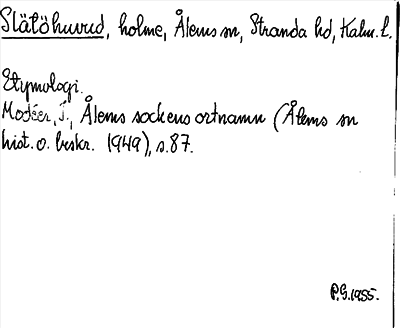 Slätöhuvud, holme, Ålems sn, Stranda hd, Kalm. l.
Etymologi.
Modéer, I., Ålems sockens ortnamn (Ålems sn
hist. o. beskr. 1949), s. 87.
P.G. 1955.